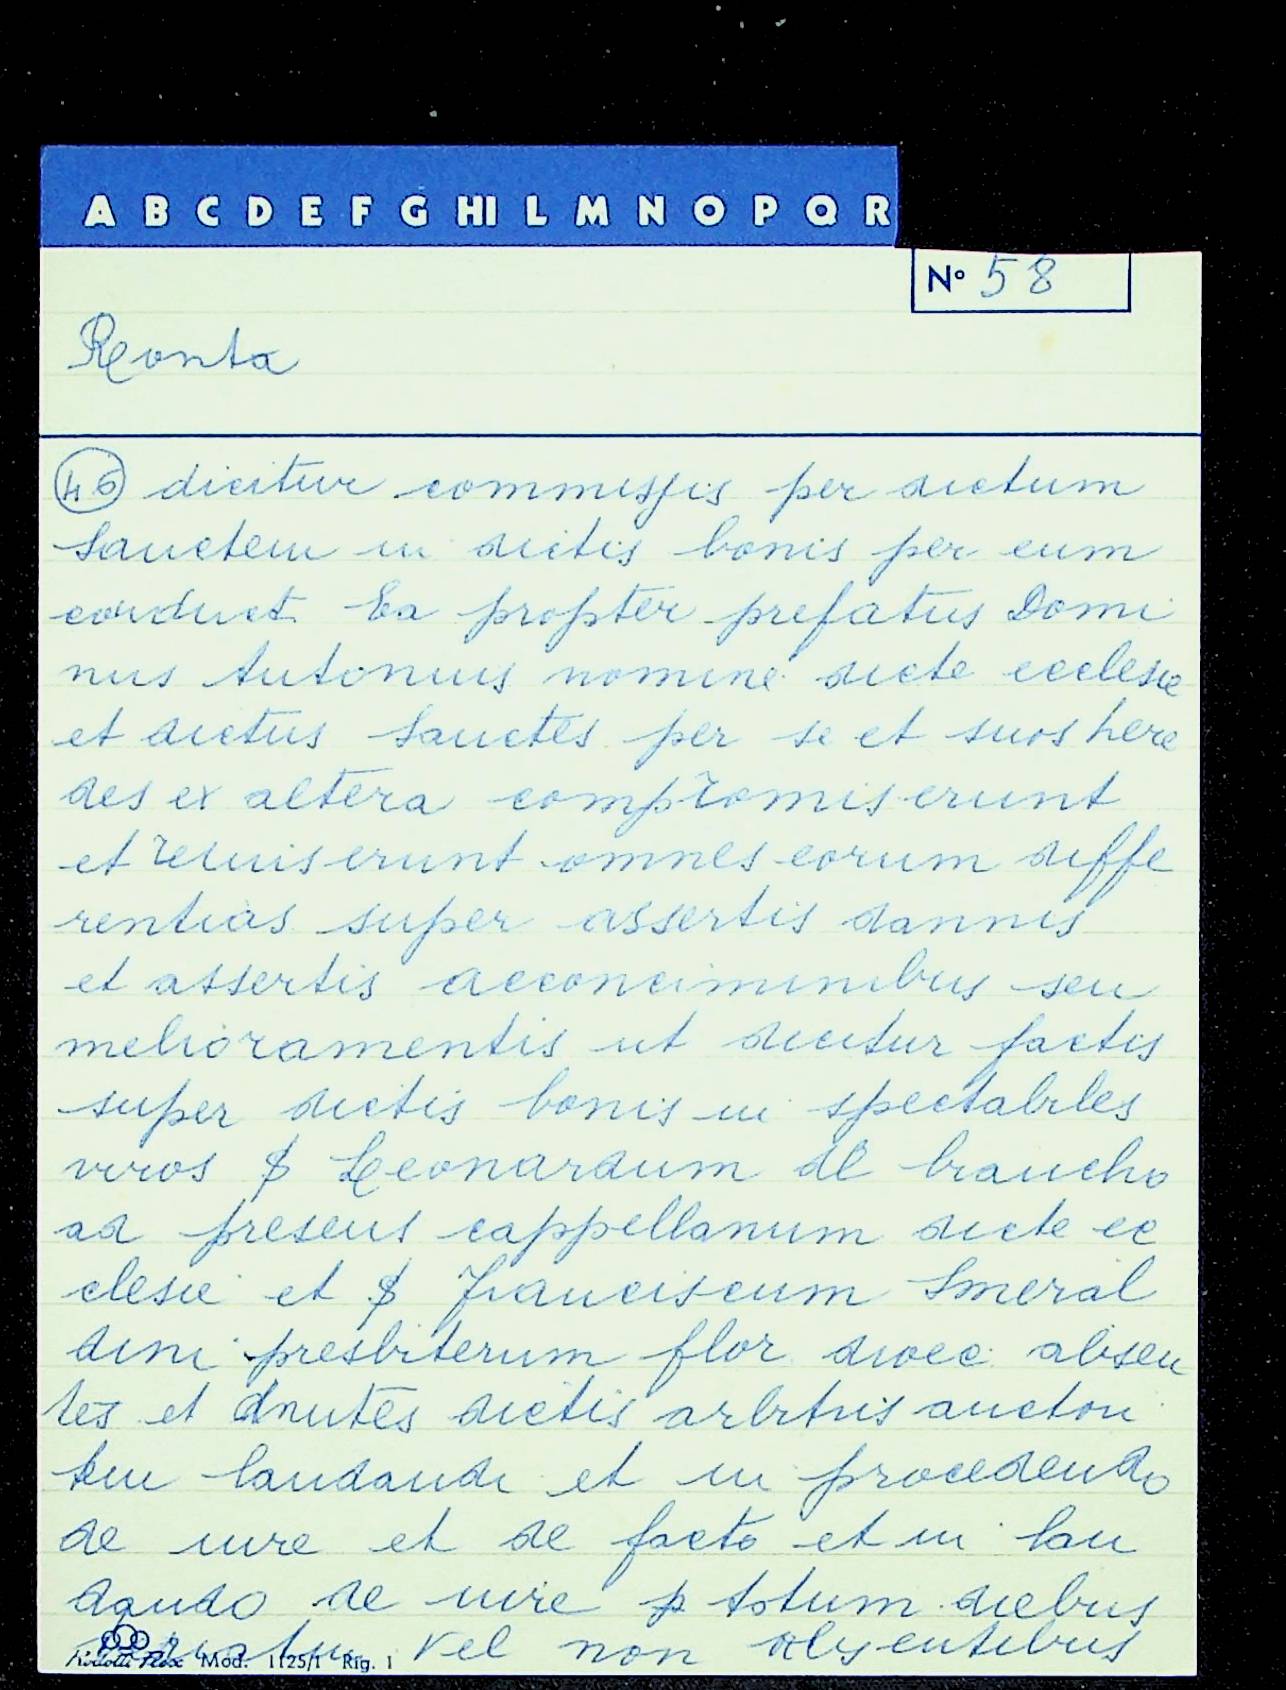 A B C D E F G HI L M N O P Q R
N° 58
Ronta
46 dicitur commissis per dictum
Sanctem in dictis bonis per eum
conduct. Ea propter prefatus Domi
nus Antonius nomine dicte ecclesie
et dictus Sanctes per se et suos here
des ex altera compromiserunt
et remiserunt omnes eorum diffe
rentias super assertis dannis
et assertis acconciminibus seu
melioramentis ut dicitur factis
super dictis bonis in spectabiles
viros $ Leonardum de braucho
ad presens cappellanum dicte ec
clesie et $ Franciscum Smeral
dini presbiterum flor dioec. absen
tes et dnutes dictis arbitris auctori
tem laudandi et in procedendo
de iure et de facto et in lau
dando de iure p totum diebus
vel non absentibus
Mod. 1125/1 Rig. 1